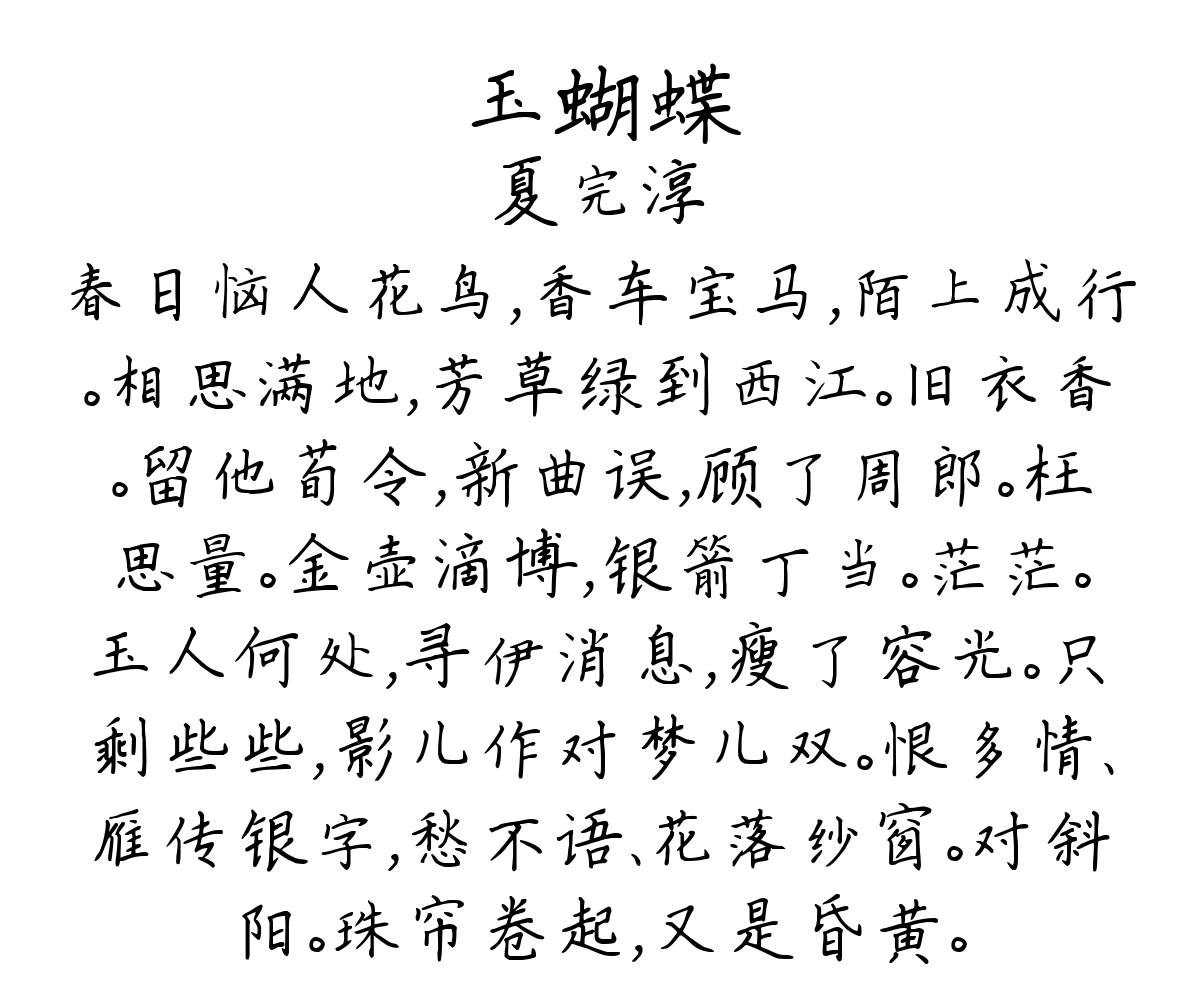 玉蝴蝶
夏完淳
春日恼人花鸟,香车宝马,陌上成行
。相思满地,芳草绿到西江。旧衣香
。留他荀令,新曲误,顾了周郎。枉
思量。金壶滴博,银箭丁当。茫茫。
玉人何处,寻伊消息,瘦了容光。只
剩些些,影儿作对梦儿双。恨多情、
雁传银字,愁不语、花落纱窗。对斜
阳。珠帘卷起,又是昏黄。